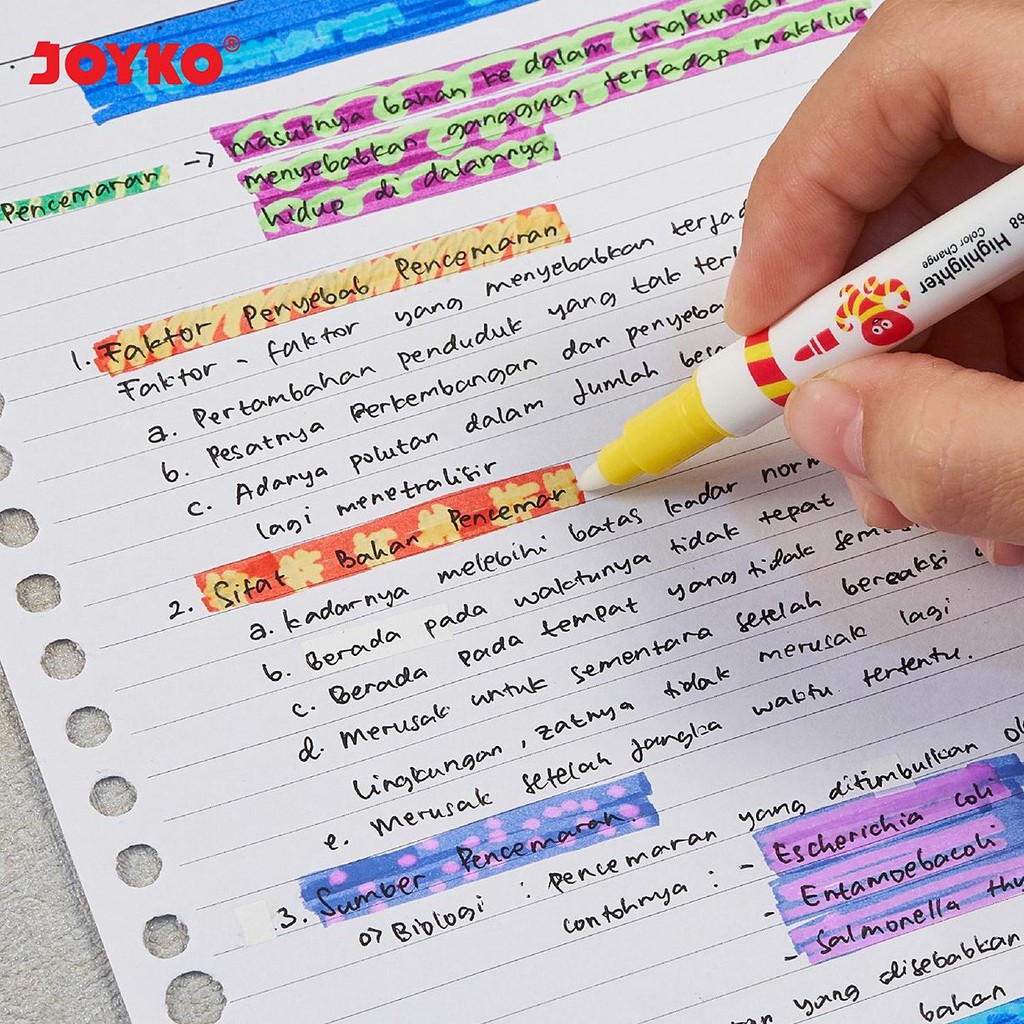 JOYKO®
masuknya bahan ke dalam lingkungan
Pencemaran -> menyebabkan gangguan terhadap makhluk
hidup di dalamnya
1. Faktor Penyebab Pencemaran
Faktor - faktor yang menyebabkan
a. Pertambahan penduduk yang tak
b. Pesatnya Perkembangan dan
c. Adanya polutan dalam Jumlah
lagi menetralisir
2. Sifat Bahan Pencemar
a. kadarnya melebihi batas kadar
b. Berada pada waktunya tidak tepat
c. Berada pada tempat yang tidak
d. Merusak untuk sementara setelah bereaksi
lingkungan, zatnya tidak merusak lagi
e. Merusak setelah Jangka waktu tertentu.
3. Sumber Pencemaran.
o> Biologi : pencemaran yang ditimbulkan
contohnya : - Escherichia coli
- Entamoebacoli
- Salmonella
yang disebabkan
bahan
Highlighter
Color Change